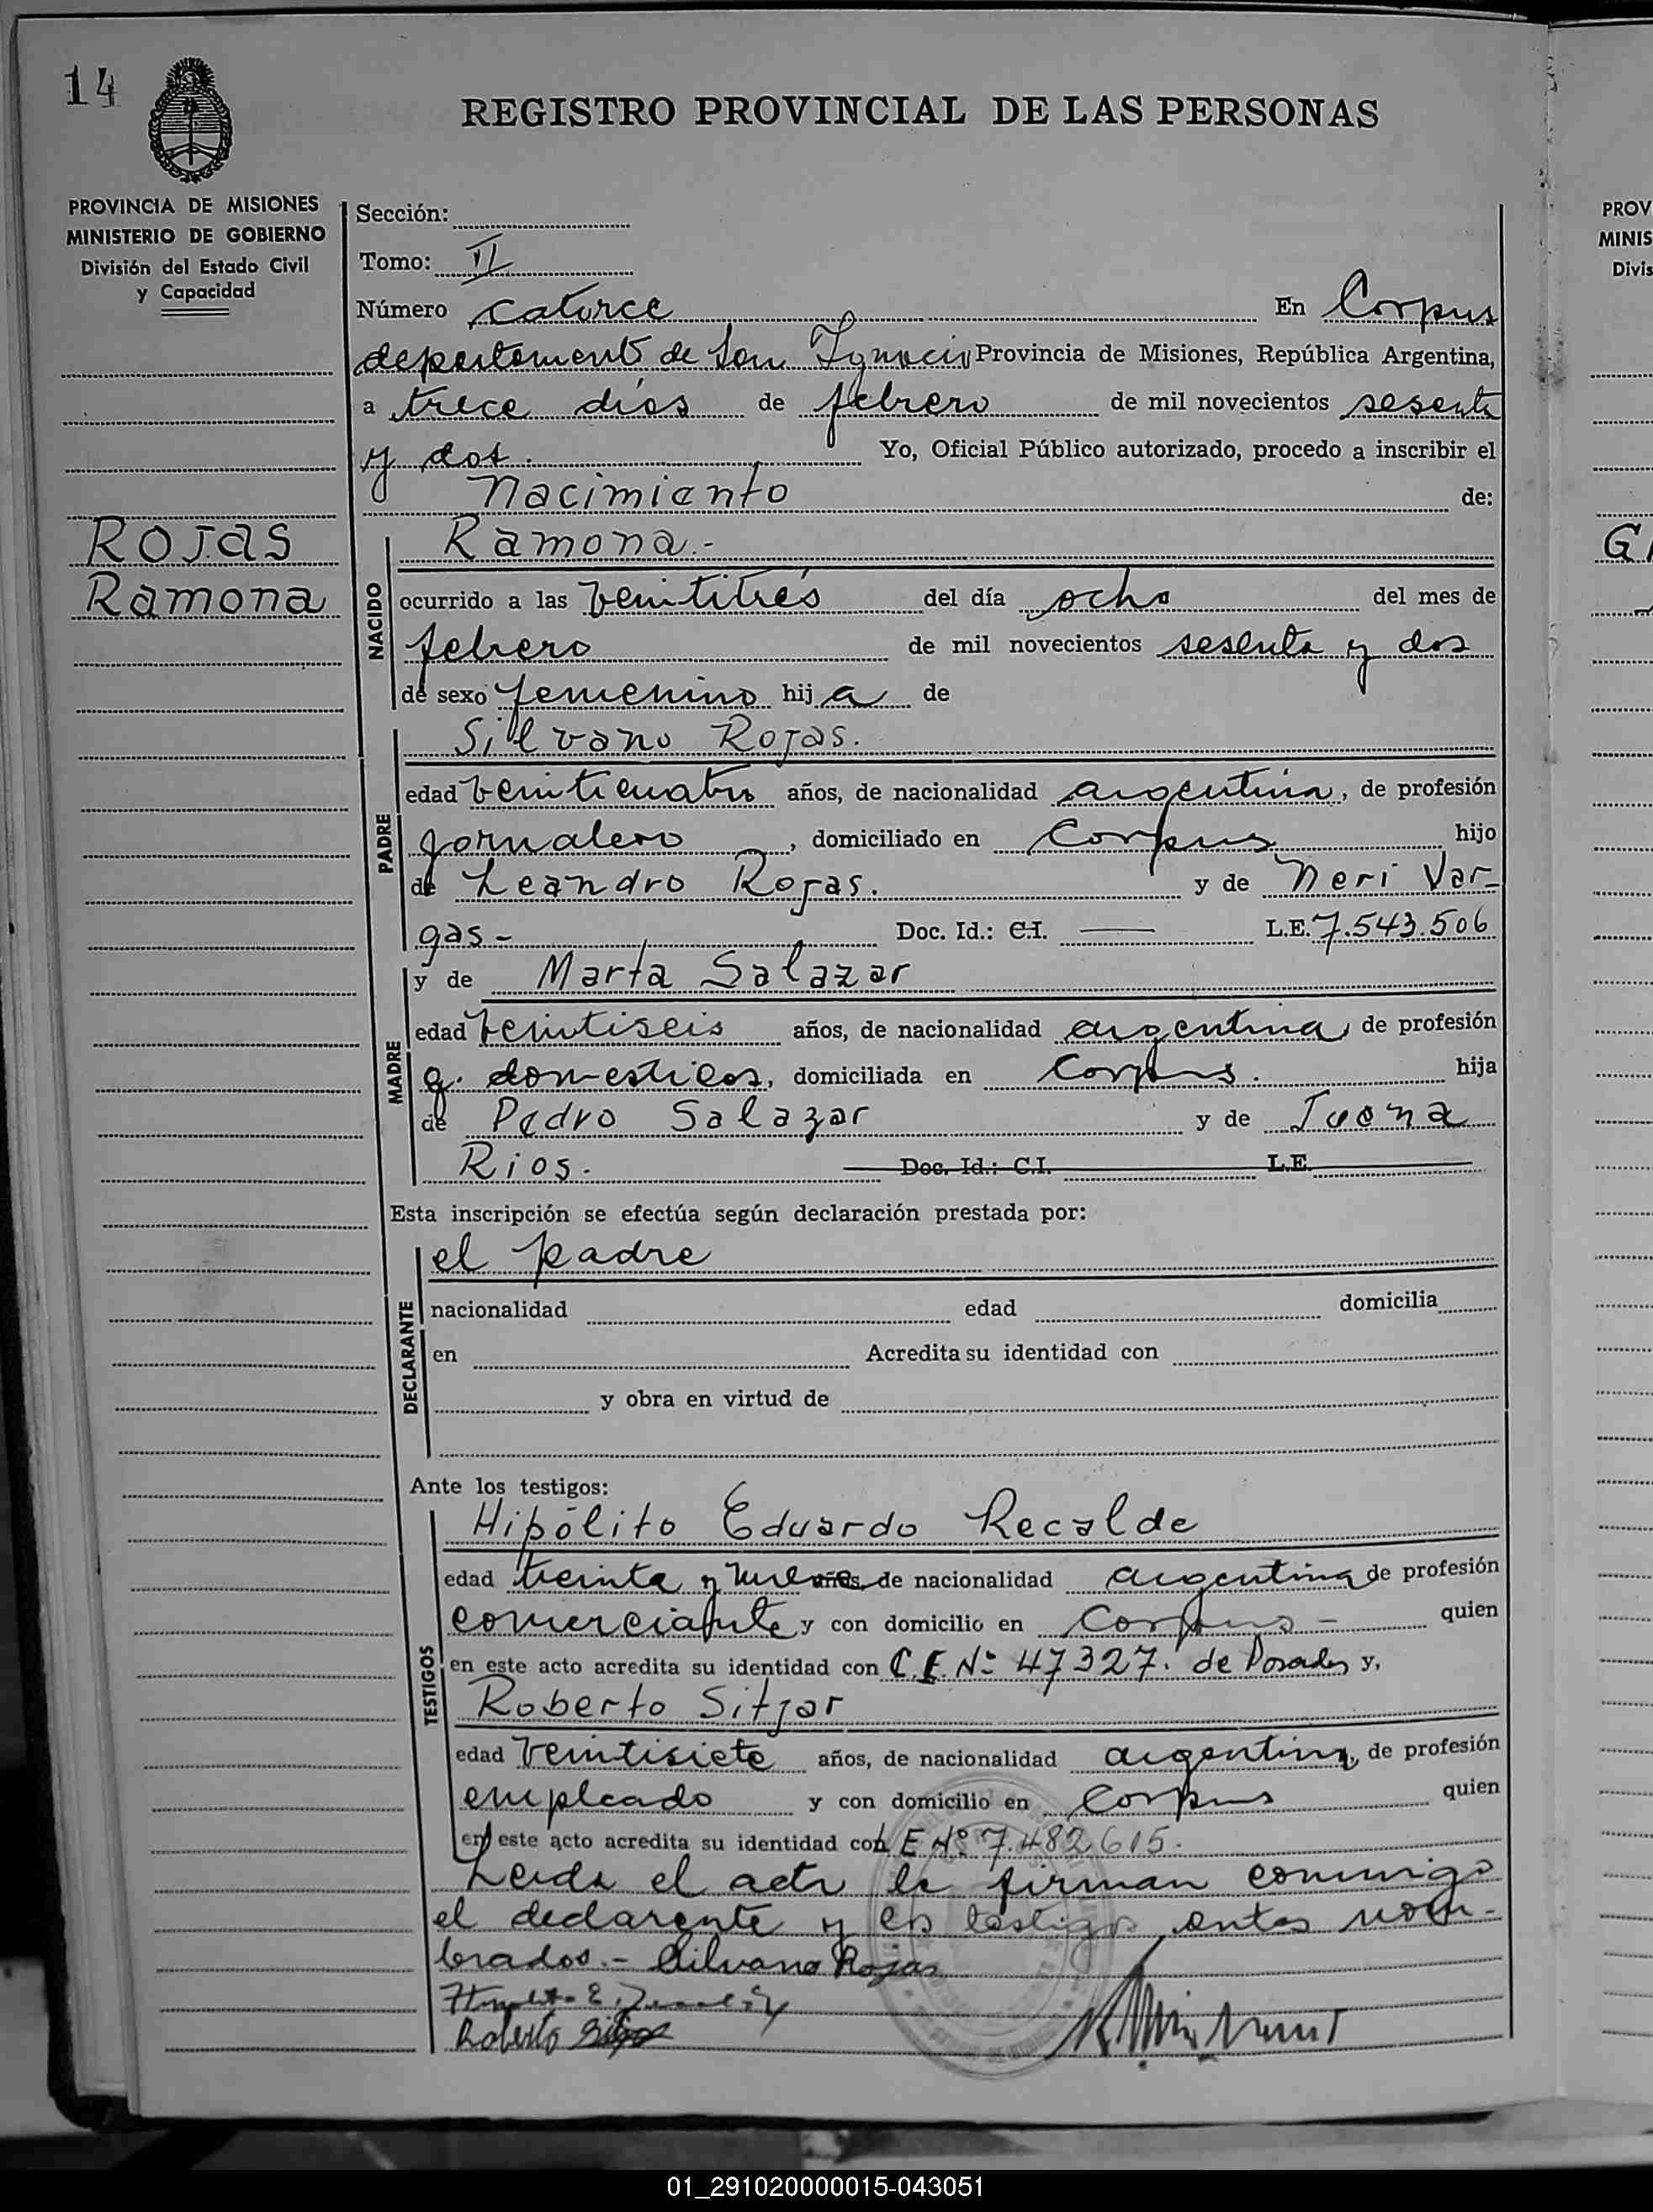 14
REGISTRO PROVINCIAL DE LAS PERSONAS
PROVINCIA DE MISIONES
MINISTERIO DE GOBIERNO
División del Estado Civil
y Capacidad
Rojas
Ramona
Sección:
Tomo: II
Número catorce En Corpus
departamento de San Ignacio Provincia de Misiones, República Argentina,
a trece días de febrero de mil novecientos sesenta
y dos. Yo, Oficial Público autorizado, procedo a inscribir el
Nacimiento de:
NACIDO
Ramona.-
ocurrido a las veintitrés del día ocho del mes de
febrero de mil novecientos sesenta y dos
de sexo femenino hij a de
PADRE
Silvano Rojas.
edad veinticuatro años, de nacionalidad argentina, de profesión
jornalero, domiciliado en Corpus hijo
de Leandro Rojas. y de Neri Var-
gas- Doc. Id.: C.I. —— L.E. 7.543.506
MADRE
y de Marta Salazar
edad veintiseis años, de nacionalidad argentina, de profesión
q. domesticos, domiciliada en Corpus. hija
de Pedro Salazar y de Juana
Rios. Doc. Id.: C.I. L.E.
Esta inscripción se efectúa según declaración prestada por:
DECLARANTE
el padre
nacionalidad edad domicilia
en Acredita su identidad con
y obra en virtud de
Ante los testigos:
TESTIGOS
Hipólito Eduardo Recalde
edad treinta y nueve años, de nacionalidad argentina de profesión
comerciante y con domicilio en Corpus- quien
en este acto acredita su identidad con C.I. Nº 47327. de Posadas y,
Roberto Sitjar
edad veintisiete años, de nacionalidad argentina, de profesión
empleado y con domicilio en Corpus quien
en este acto acredita su identidad con L E Nº 7.482.615.
Leida el acta la firman conmigo
el declarante y los testigos antes nom-
brados.- Silvano Rojas
Roberto
PROV
MINIS
Divis
G
01_291020000015-043051